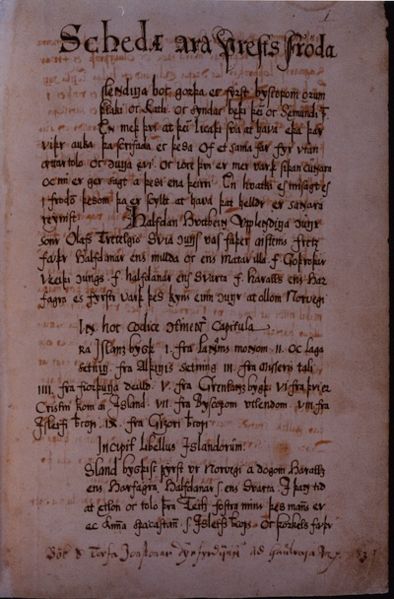 Schedæ Ara Prests Froda
slendinga boc gørþa ec fyrst byscopom órum
þorláki oc Katli oc sýndac bæþi þeim oc Sæmundi
En meþ þvi at þeim licaþi svá at hava eþa þar
viþr auka þa scrifaþa ec þessa of et sama far fyr utan
áttar tolo oc conunga ævi oc iócc þvi es mer varþ síþan cunnara
oc nu es gerr sagt a þessi en a þeirri En hvatki es missagt es
i froþom þessom þa er scyllt at hava þat helldr er sannara
reynist Halfdan hvitbein Upplendinga cunungr
sonr Olafs Tretelgio Svia cunungs vas faþer Eysteins frets
faþur Halfdanar ens millda oc ens matar illa f. Goþroþar
veiþi cunungs f. halfdanar ens svarta f. haralls ens Har
fagra es fyrstr varþ þess kyns einn cunungr at ollom Norvegi
In hoc Codice continentur Capitula
Fra Islanz bygþ I. fra Lannáms monnom II. oc laga
setning fra Alþingis setning III. fra misseris tali
IIII. fra fiorþunga deilld V. fra Grenlanz bygþ VI. fra þvi er
Cristni kom a Island VII. fra Byscopom utlendom VIII. fra
Isleifi byscopi IX. fra Gizori byscopi
Incipit Libellus Islandorum
Island bygþisc fyrst ur Norvegi a dogom Haralls
ens Harfagra Halfdanar s. ens Svarta i þann tiþ
at ætlon oc tolo þeira Teits fostra mins þess manz er
ec kunna spacastan s. Isleifs byscops oc Þorkels faþor